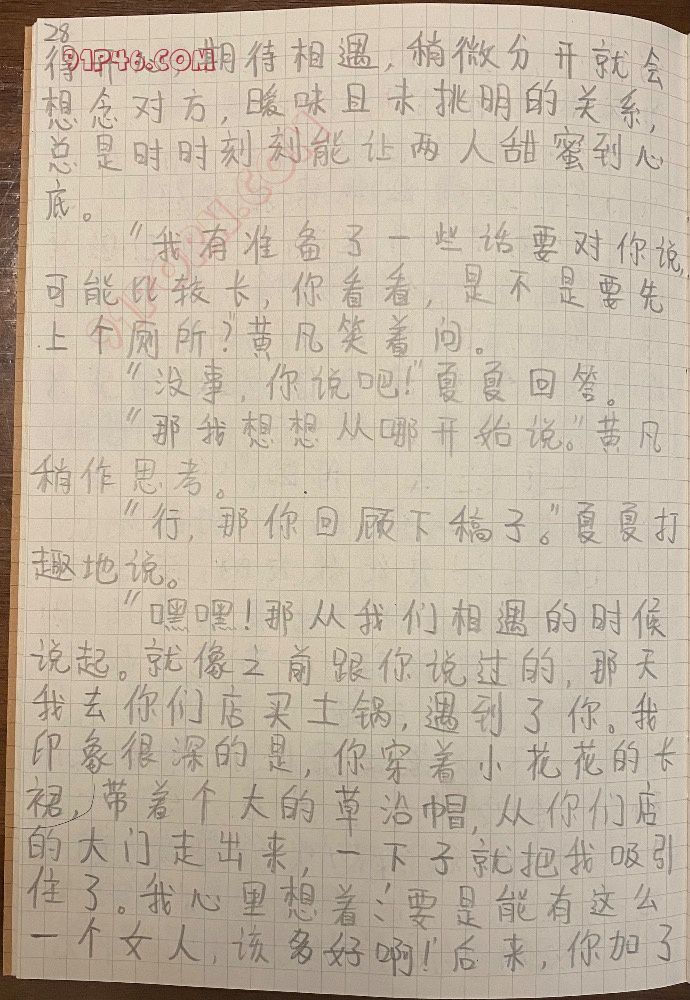 28
得 91P46.COM 期待相遇,稍微分开就会
想念对方,暧昧且未挑明的关系,
总是时时刻刻能让两人甜蜜到心
底。
“我有准备了一些话要对你说,
可能比较长,你看看,是不是要先
上个厕所?”黄凡笑着问。
“没事,你说吧!”夏夏回答。
“那我想想从哪开始说。”黄凡
稍作思考。
“行,那你回顾下稿子。”夏夏打
趣地说。
“嘿嘿!那从我们相遇的时候
说起。就像之前跟你说过的,那天
我去你们店买土锅,遇到了你。我
印象很深的是,你穿着小花花的长
裙,带着个大的草沿帽,从你们店
的大门走出来,一下子就把我吸引
住了。我心里想着:‘要是能有这么
一个女人,该多好啊!’后来,你加了